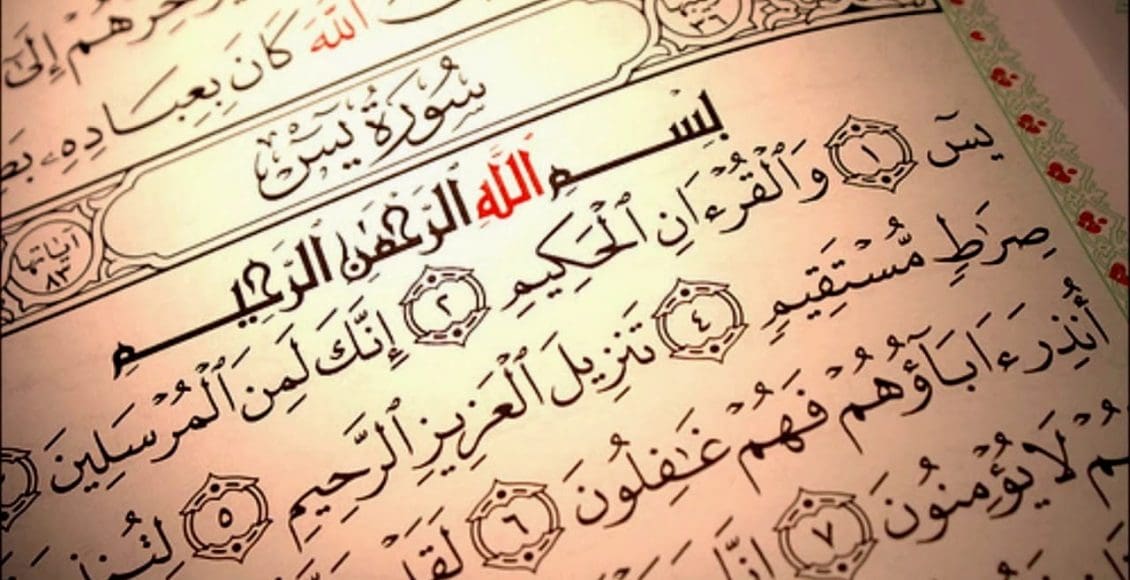 إِلَىٰ
ٱللَّهَ كَانَ بِعِبَادِهِۦ
سُورَةُ يسٓ
آياتها ٨٣
٣٦
بِسْمِ ٱللَّهِ ٱلرَّحْمَٰنِ ٱلرَّحِيمِ
يسٓ ١ وَٱلْقُرْءَانِ ٱلْحَكِيمِ ٢ إِنَّكَ لَمِنَ ٱلْمُرْسَلِينَ
صِرَٰطٍ مُّسْتَقِيمٍ ٤ تَنزِيلَ ٱلْعَزِيزِ ٱلرَّحِيمِ ٥
أُنذِرَ ءَابَآؤُهُمْ فَهُمْ غَٰفِلُونَ ٦
لَا يُؤْمِنُونَ ٧